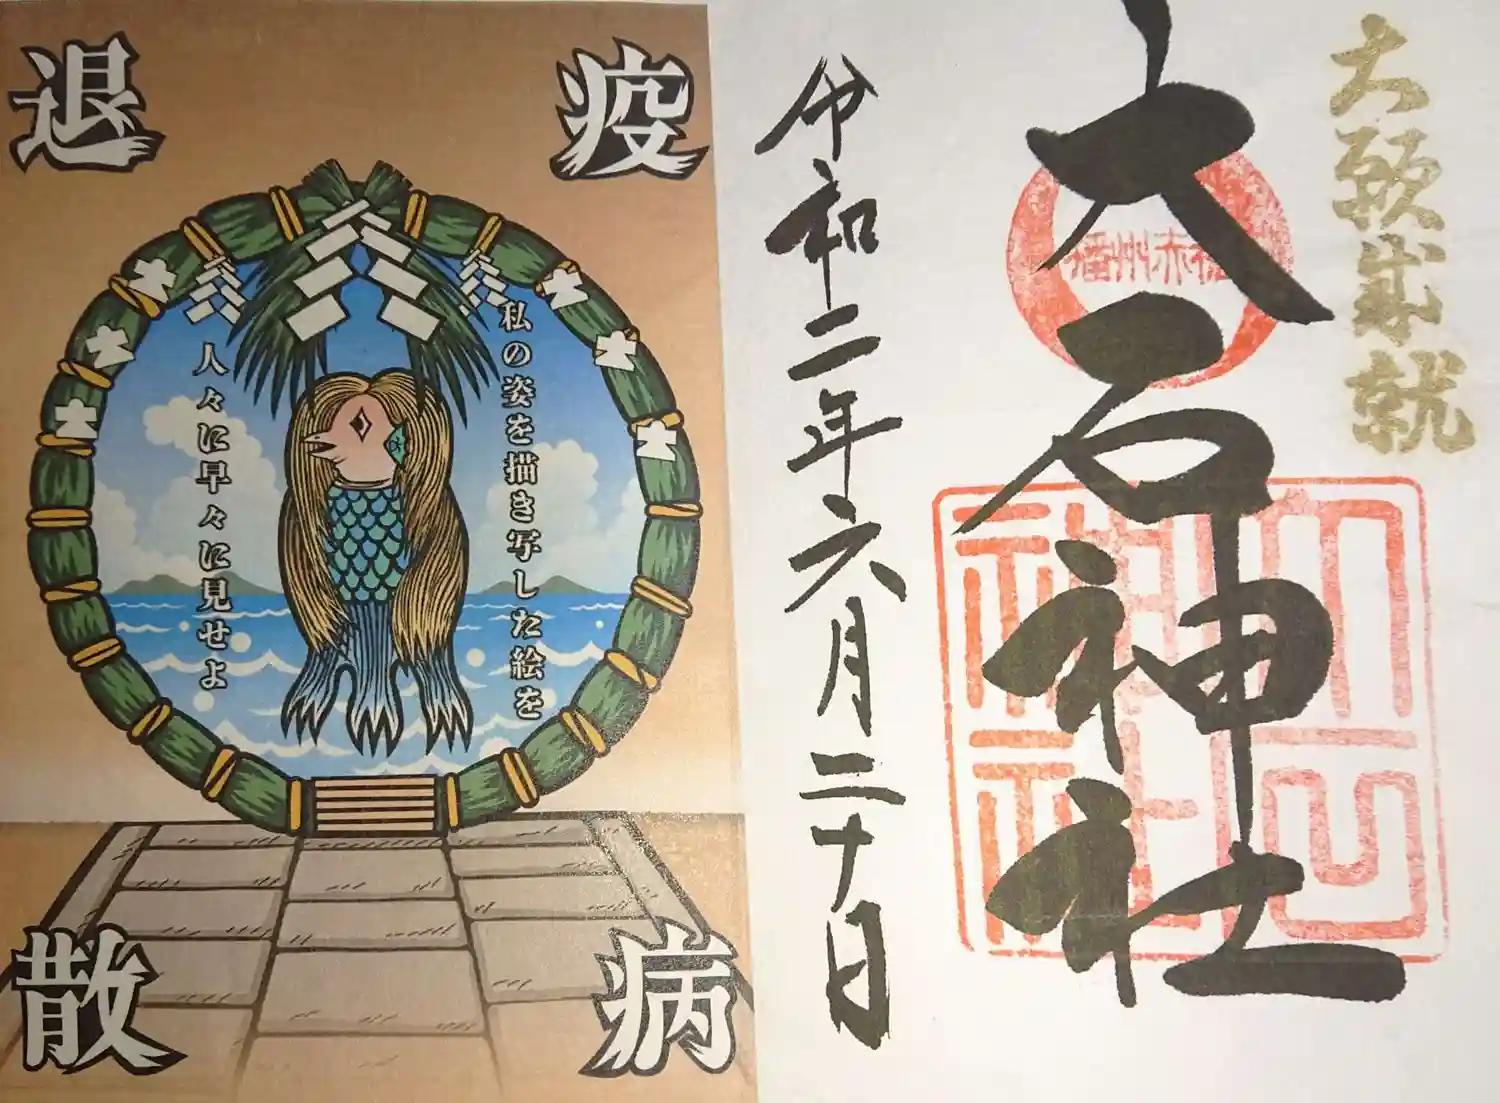 大願成就
大石神社
播州赤穂
大石神社
令和二年六月二十日
疫病退散
私の姿を描き写した絵を
人々に早々に見せよ